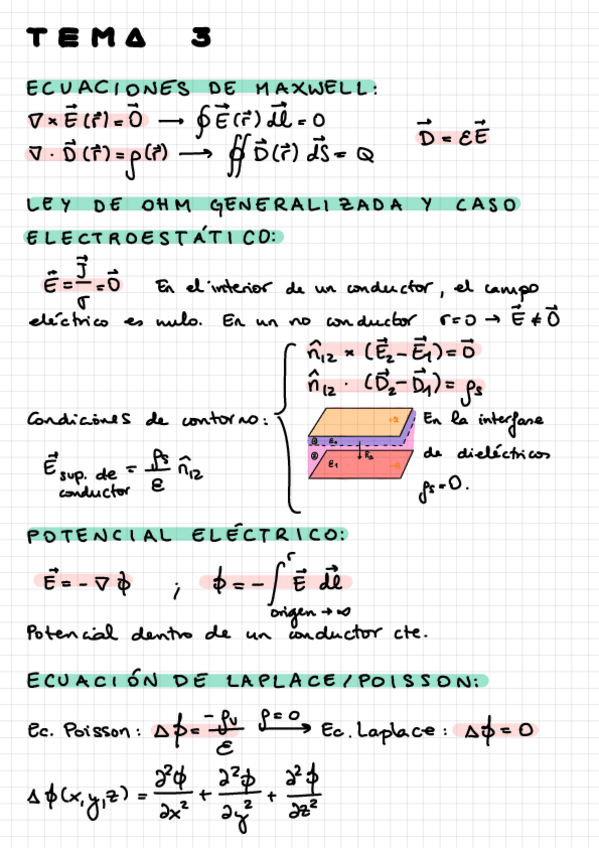 TEMA 3
ECUACIONES DE MAXWELL:
∇ × E⃗(r⃗) = 0⃗ → ∮ E⃗(r⃗) dl⃗ = 0
∇ · D⃗(r⃗) = ρ(r⃗) → ∯ D⃗(r⃗) dS⃗ = Q
D⃗ = εE⃗
LEY DE OHM GENERALIZADA Y CASO
ELECTROESTÁTICO:
E⃗ = J⃗/σ = 0⃗ En el interior de un conductor, el campo
eléctrico es nulo. En un no conductor r=0 → E⃗ ≠ 0⃗
n̂₁₂ × (E⃗₂ - E⃗₁) = 0⃗
n̂₁₂ · (D⃗₂ - D⃗₁) = ρs
Condiciones de contorno:
E⃗ sup. de conductor = ρs/ε n̂₁₂
② E₂
① E₁
En la interfase
de dieléctricos
ρs = 0.
POTENCIAL ELÉCTRICO:
E⃗ = -∇ϕ ; ϕ = -∫ʳ origen → ∞ E⃗ dl⃗
Potencial dentro de un conductor cte.
ECUACIÓN DE LAPLACE/POISSON:
Ec. Poisson: Δϕ = -ρv/ε ρ=0 → Ec. Laplace: Δϕ = 0
Δϕ(x,y,z) = ∂²ϕ/∂x² + ∂²ϕ/∂y² + ∂²ϕ/∂z²